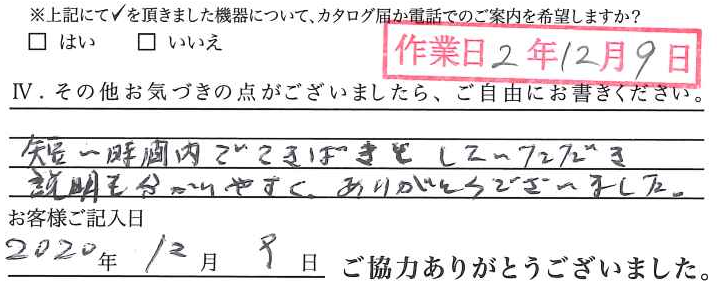 ※上記にて✓を頂きました機器について、カタログ届か電話でのご案内を希望しますか？
□ はい □ いいえ
作業日2年12月9日
Ⅳ．その他お気づきの点がございましたら、ご自由にお書きください。
短い時間内でてきぱきとしていただき
説明も分かりやすく、ありがとうございました。
お客様ご記入日
2020年 12月 9日 ご協力ありがとうございました。